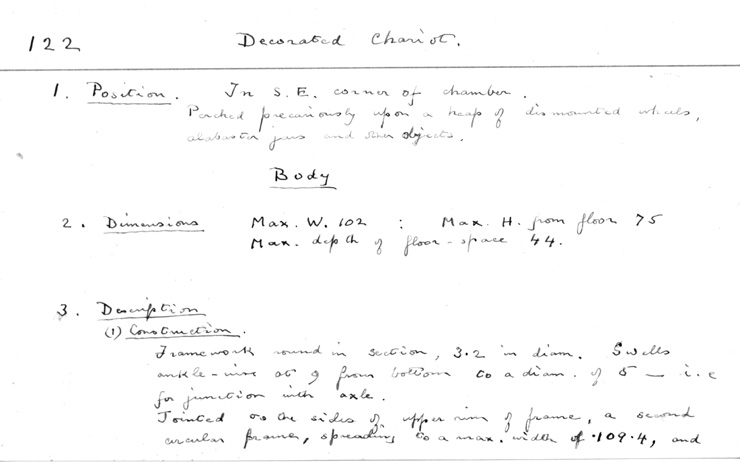 122 Decorated Chariot.
1. Position. In S.E. corner of chamber.
Perched precariously upon a heap of dismounted wheels,
alabaster jars and other objects.
Body
2. Dimensions Max. W. 102 : Max. H. from floor 75
Max. depth of floor-space 44.
3. Description
(1) Construction.
Framework round in section, 3.2 in diam. Swells
ankle-wise at 9 from bottom to a diam. of 5 — i.e
for junction with axle.
Jointed to the sides of upper rim of frame, a second
circular frame, spreading to a max. width of 109.4, and